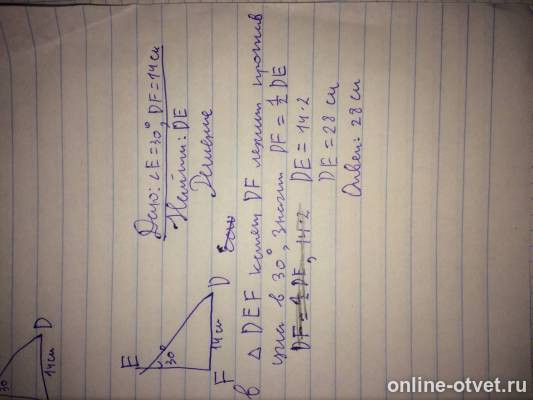 Дано: ∠E=30°, DF=14см
Найти: DE
Решение
E
30°
14см
F
D
В △ DEF катет DF лежит против
угла в 30°, значит DF = 1/2 DE
DF = 1/2 DE, 14·2
DE = 14·2
DF = 28 см
Ответ: 28 см
30
14см
D
online-otvet.ru